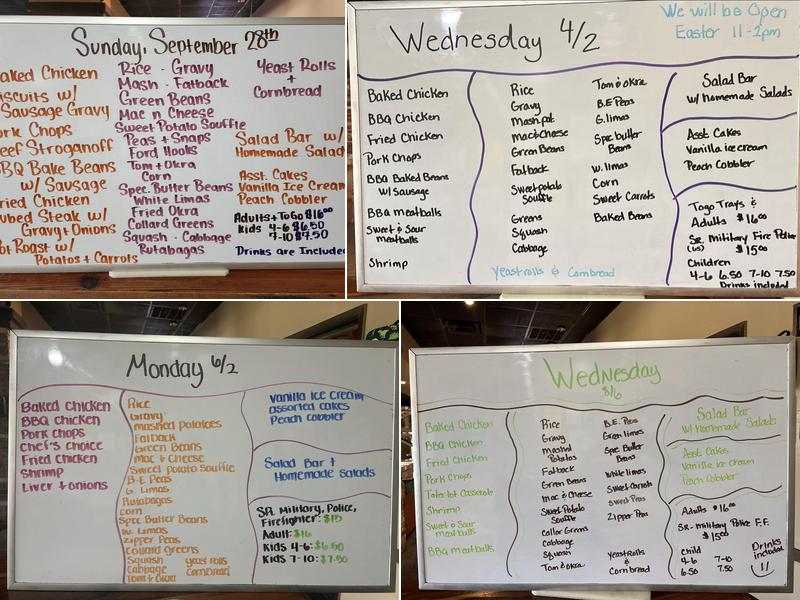 Sunday, September 28th
aked Chicken
iscuits w/
Sausage Gravy
ork Chops
eef Stroganoff
BQ Bake Beans
w/ Sausage
ried Chicken
ubed Steak w/
Gravy + Onions
ot Roast w/
Potatoes + Carrots
Rice - Gravy
Mash - Fatback
Green Beans
Mac n Cheese
Sweet Potato Souffle
Peas + Snaps
Ford Hooks
Tom + Okra
Corn
Spec. Butter Beans
White Limas
Fried Okra
Collard Greens
Squash - Cabbage
Rutabagas
Yeast Rolls
+
Cornbread
Salad Bar w/
Homemade Salad
Asst. Cakes
Vanilla Ice Cream
Peach Cobbler
Adults + To Go $16.00
Kids 4-6 $6.50
7-10 $7.50
Drinks are Include
Wednesday 4/2
We will be Open
Easter 11-2pm
Baked Chicken
BBQ Chicken
Fried Chicken
Pork Chops
BBQ Baked Beans
w/ Sausage
BBQ meatballs
Sweet & Sour
meatballs
Shrimp
Rice
Gravy
Mash pot
mac & Cheese
Green Beans
Fatback
Sweet potato
Souffle
Greens
Squash
Cabbage
Tom & okra
B.E Peas
G. limas
Spec butter
Beans
w. limas
Corn
Sweet Carrots
Baked Beans
Yeast rolls & Cornbread
Salad Bar
w/ Homemade Salads
Asst Cakes
Vanilla ice cream
Peach Cobbler
Togo Trays &
Adults $16.00
Sr. Military Fire Police
(us) $15.00
Children
4-6 6.50 7-10 7.50
Drinks included
Monday 6/2
Baked Chicken
BBQ Chicken
Pork Chops
Chef's choice
Fried Chicken
Shrimp
Liver + onions
Rice
Gravy
mashed potatoes
Fatback
Green Beans
Mac & Cheese
Sweet potato Souffle
B-E Peas
G. Limas
Rutabagas
corn
Spec Butter Beans
w. Limas
Zipper Peas
collard greens
Squash yeast rolls
Cabbage Cornbread
Tom + Okra
Vanilla Ice cream
assorted cakes
Peach cobbler
Salad Bar +
Homemade Salads
SR. Military, Police,
Firefighter: $15
Adult: $16
Kids 4-6: $6.50
Kids 7-10: $7.50
Wednesday
8/6
Baked Chicken
BBQ Chicken
Fried Chicken
Pork Chops
Tater tot Casserole
Shrimp
Sweet & Sour
meatballs
BBQ meatballs
Rice
Gravy
mashed
Potatos
Fatback
Green Beans
mac & Cheese
Sweet Potato
Souffle
Collar Greens
Cabbage
Squash
Tom & okra
B.E. Peas
Green limas
Spec Butter
Beans
white limas
Sweet Carrots
Sweet Peas
Zipper Peas
Yeastrolls
&
Cornbread
Salad Bar
w/ Homemade Salads
Asst Cakes
Vanilla Ice Cream
Peach Cobbler
Adults $16.00
Sr. military Police F.F.
$15.00
Child
4-6 7-10
6.50 7.50
Drinks
included